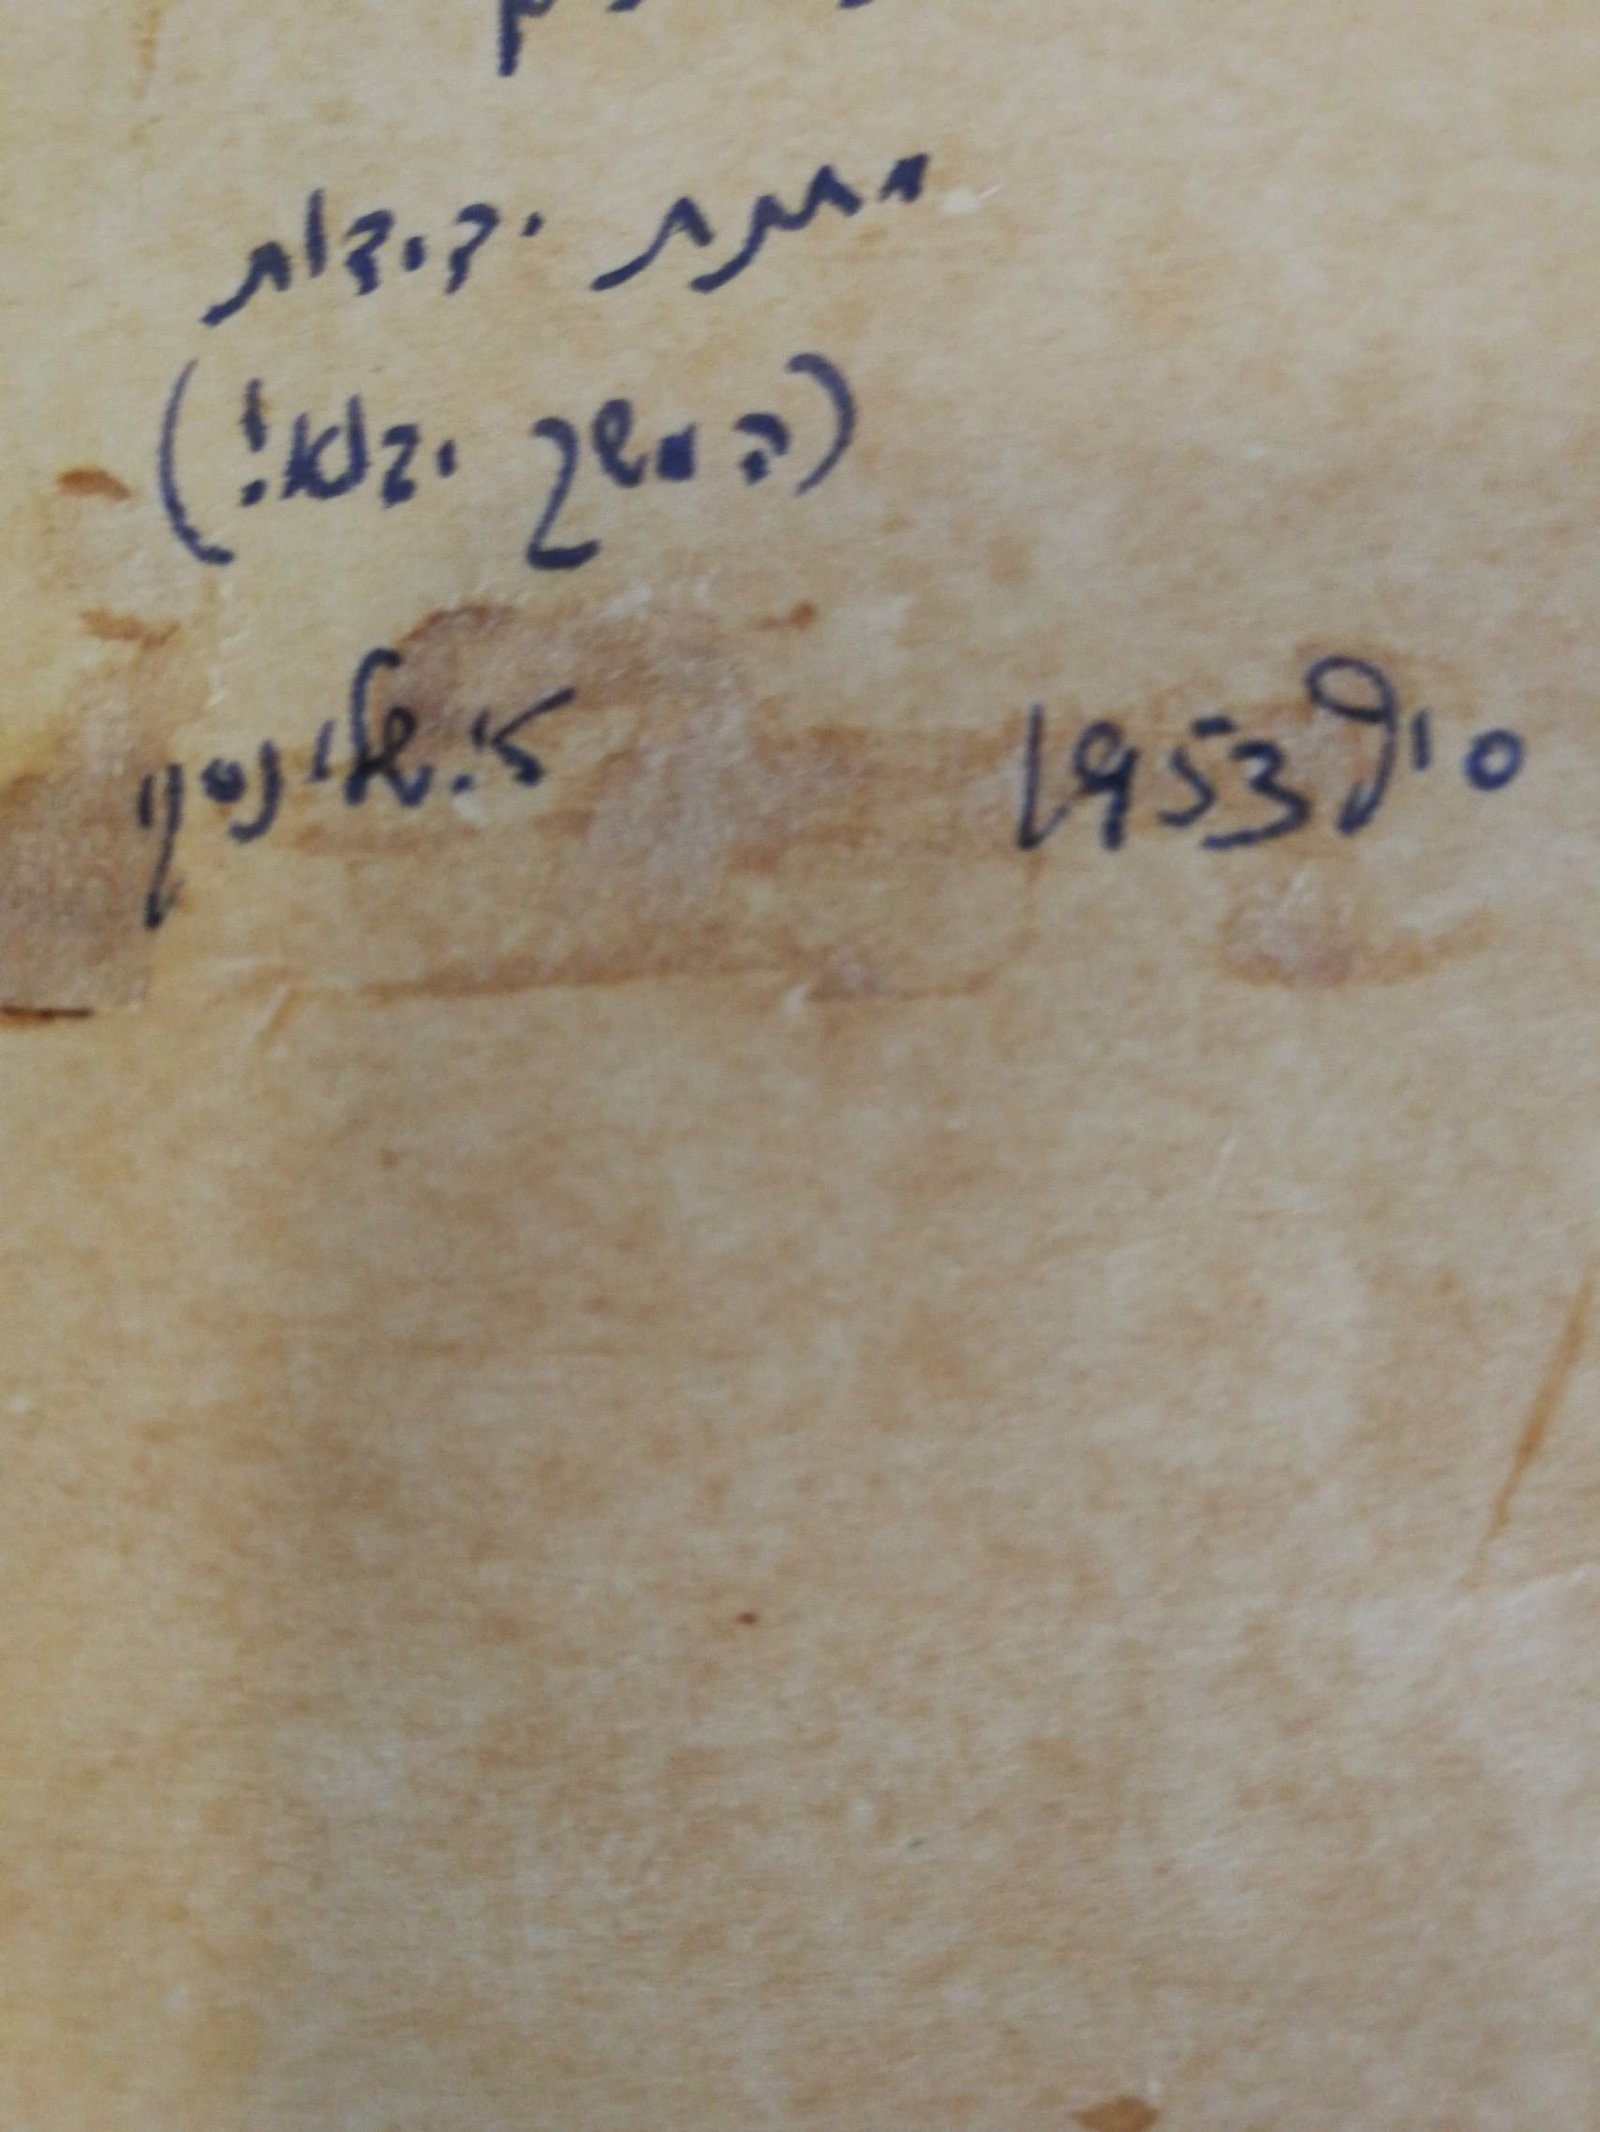 מתנת ידידות
(המשך יבוא!)
סוף 1953 א. שלינסקי